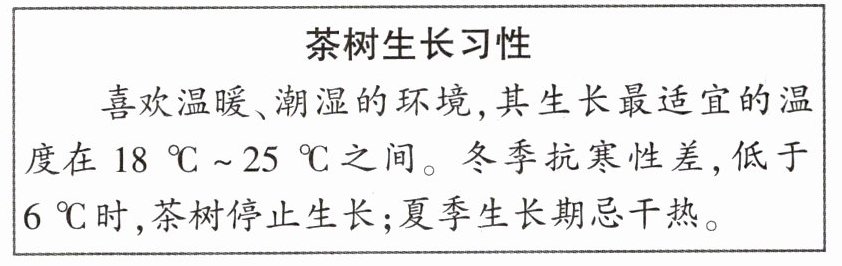 茶树生长习性
喜欢温暖、潮湿的环境,其生长最适宜的温
度在 18 ℃ ~ 25 ℃之间。冬季抗寒性差,低于
6 ℃时,茶树停止生长;夏季生长期忌干热。